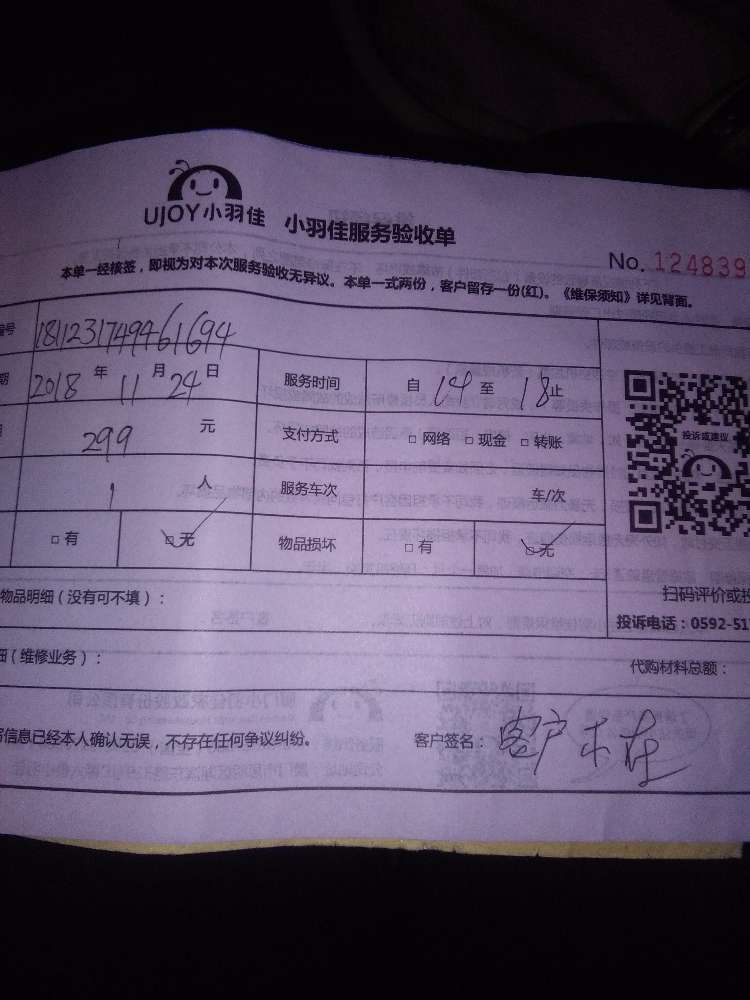 UJOY小羽佳 小羽佳服务验收单
No. 124839
本单一经核签，即视为对本次服务验收无异议。本单一式两份，客户留存一份(红)。《维保须知》详见背面。
号 1811231749461694
期 2018 年 11 月 24 日 服务时间 自 14 至 18 止
299 元 支付方式 □ 网络 □ 现金 □ 转账
投诉或建议
1 人 服务车次 车/次
□ 有 □ 无 物品损坏 □ 有 □ 无
物品明细（没有可不填）：
扫码评价或投
投诉电话：0592-51
细（维修业务）： 代购材料总额：
信息已经本人确认无误，不存在任何争议纠纷。 客户签名： 客户不在